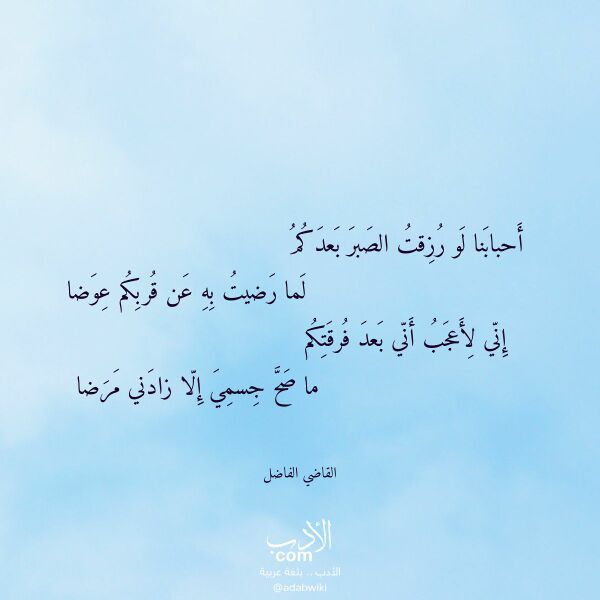 أَحبابَنا لَو رُزِقتُ الصَبرَ بَعدَكُمُ
لَما رَضيتُ بِهِ عَن قُربِكُم عِوَضا
إِنّي لِأَعجَبُ أَنّي بَعدَ فُرقَتِكُم
ما صَحَّ جِسمِيَ إِلّا زادَني مَرَضا
القاضي الفاضل
الأدب
com
الأدب .. بلغة عربية
@adabwiki